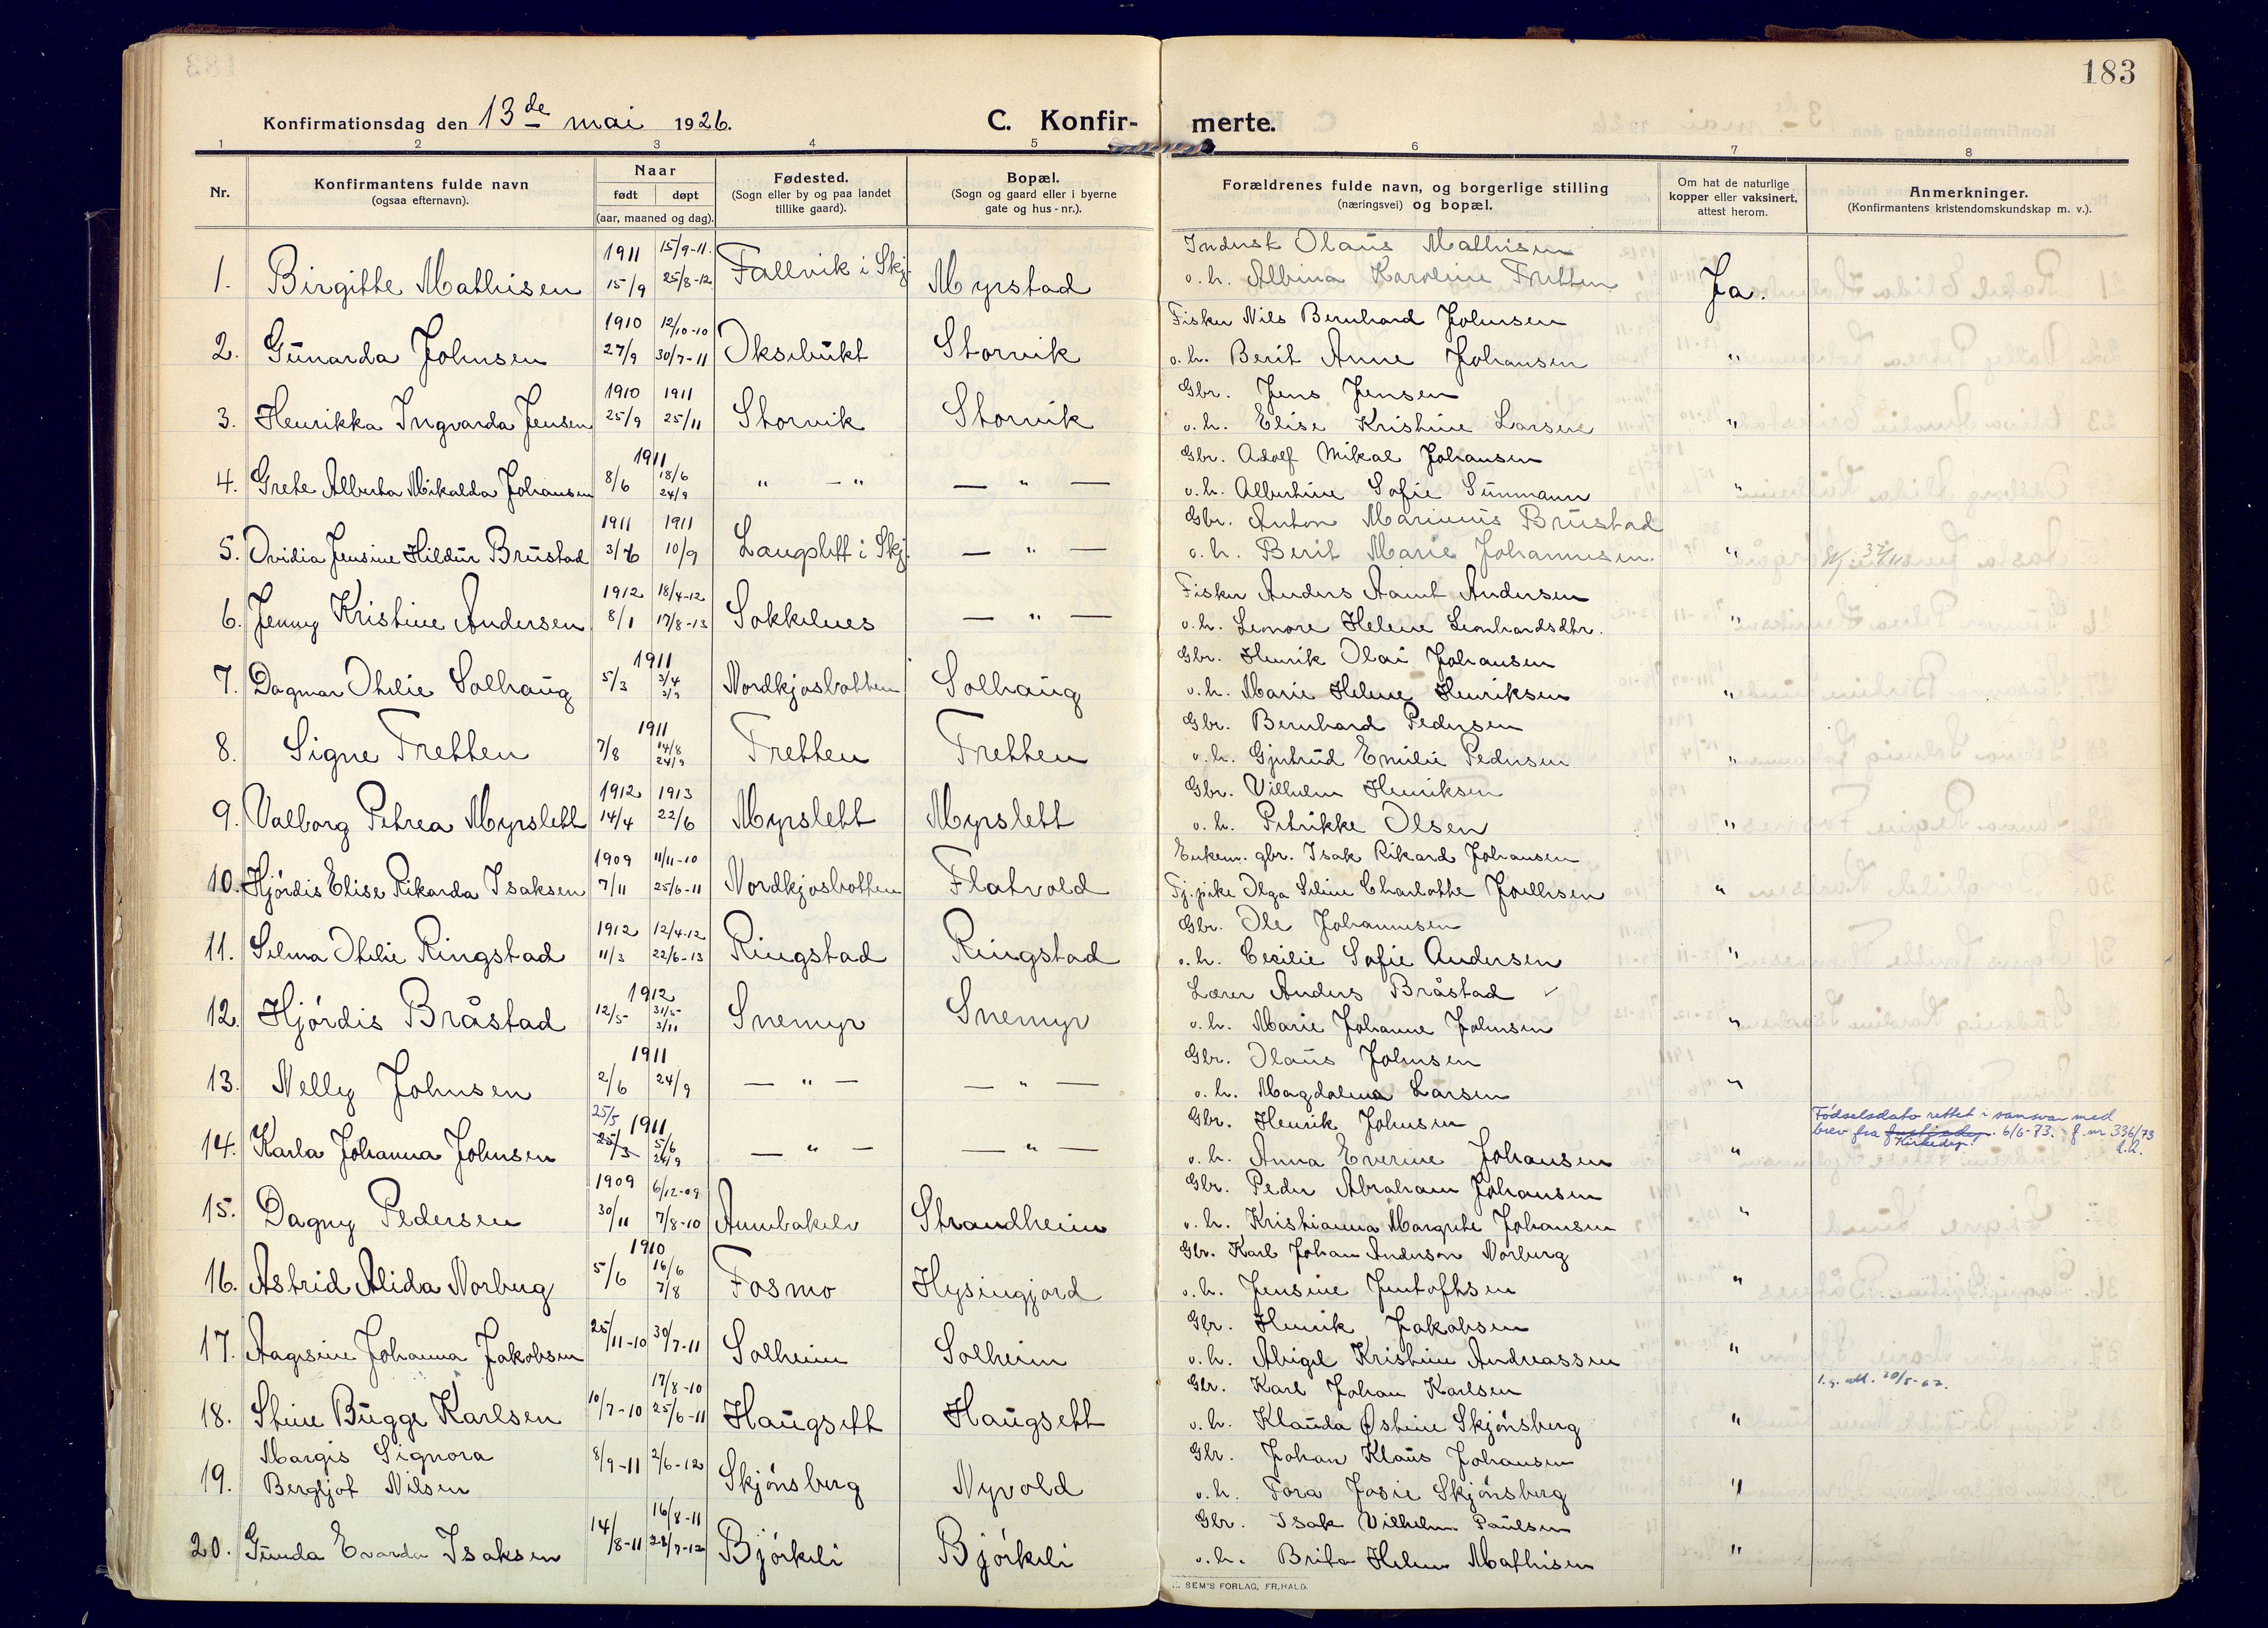 183
Konfirmationsdag den 13de mai 1926. C. Konfir- merte.
1 2 3 4 5 6 7 8
Nr. Konfirmantens fulde navn (ogsaa efternavn). Naar født døpt (aar, maaned og dag). Fødested. (Sogn eller by og paa landet tillike gaard). Bopæl. (Sogn og gaard eller i byerne gate og hus-nr.). Forældrenes fulde navn, og borgerlige stilling (næringsvei) og bopæl. Om hat de naturlige kopper eller vaksinert, attest herom. Anmerkninger. (Konfirmantens kristendomskundskap m. v.).
1911 15/9-11. Inderst Olaus Mathisen
1. Birgitte Mathisen 15/9 25/8-12 Fallvik i Skj. Myrstad o. h. Albina Karoline Fretten Ja.
1910 12/10-10 Fisker Nils Bernhard Johnsen
2. Gunarda Johnsen 27/9 30/7-11 Oksebukt Storvik o. h. Berit Anne Johansen "
1910 1911 Gbr. Jens Jensen
3. Henrikka Ingvarda Jensen 25/9 25/11 Storvik Storvik o. h. Elise Kristine Larsen "
1911 Gbr. Adolf Mikal Johansen
4. Grete Alberta Mikalda Johansen 8/6 18/6 24/9 " — " — " — o. h. Albertine Sofie Sunmann "
1911 1911 Gbr. Anton Marinius Brustad
5. Ovidia Jensine Hildur Brustad 3/6 10/9 Langslett i Skj. — " — o. h. Berit Marie Johannesen. "
1912 18/4-12 Fisker Anders Aamt Andersen
6. Jenny Kristine Andersen 8/1 17/8-13 Sokkelnes — " — o. h. Lenore Helene Leonhardsdtr. "
1911 Gbr. Henrik Olai Johansen
7. Dagmar Othilie Solhaug 5/3 3/4 3/9 Nordkjosbotten Solhaug o. h. Marie Helene Henriksen "
1911 Gbr. Bernhard Pedersen
8. Signe Fretten 7/8 14/8 24/9 Fretten Fretten o. h. Gjertrud Emilie Pedersen "
1912 1913 Gbr. Vilhelm Henriksen
9. Valborg Petrea Myrslett 14/4 22/6 Myrslett Myrslett o. h. Petrikke Olsen "
1909 11/11-10 Enkem. gbr. Isak Rikard Johansen
10. Hjördis Elise Rikarda Isaksen 7/11 25/6-11 Nordkjosbotten Flatvold Tj. pike Olga Seline Charlotte Joelhsen "
1912 12/4-12 Gbr. Ole Johannesen
11. Selma Othilie Ringstad 11/3 22/6-13 Ringstad Ringstad o. h. Cecilie Sofie Andersen "
1912 Lærer Anders Bråstad ✓
12. Hjördis Bråstad 12/5 31/5 3/11 Snemyr Snemyr o. h. Marie Johanne Johnsen "
1911 Gbr. Olaus Johnsen
13. Nelly Johnsen 2/6 24/9 — " — — " — o. h. Magdalena Larsen "
25/5 1911 Gbr. Henrik Johnsen Fødselsdato rettet i samsvar med
14. Karla Johanna Johnsen 25/3 5/6 24/9 — " — — " — o. h. Anna Everine Johansen " brev fra Justisdep. Kirkedep. 6/6-73. J. nr 336/73
1909 6/12-09 Gbr. Peder Abraham Johansen
15. Dagny Pedersen 30/11 7/8-10 Annbakelv Strandheim o. h. Kristianna Margrete Johansen "
1910 Gbr. Karl Johan Anderson Norberg
16. Astrid Alida Norberg 5/6 16/6 7/8 Fosmo Hysingjord o. h. Jensine Jentoftsen "
25/11-10 30/7-11 Gbr. Henrik Jakobsen
17. Aagesine Johanna Jakobsen Solheim Solheim o. h. Abigel Kristine Andreassen "
17/8-10 Gbr. Karl Johan Karlsen
18. Stine Bugge Karlsen 10/7-10 25/6-11 Haugsett Haugsett o. h. Klauda Østine Skjönsberg "
Margis Signora 8/9-11 2/6-12 Gbr. Johan Klaus Johansen
19. Bergljot Nilsen Skjönsberg Nyvold o. h. Tora Josie Skjönsberg "
14/8-11 16/8-11 Gbr. Isak Vilhelm Paulsen
20. Gunda Evarda Isaksen 28/7-12 Björkeli Björkeli o. h. Brita Helene Mathisen "
SEM'S FORLAG, FR.HALD.